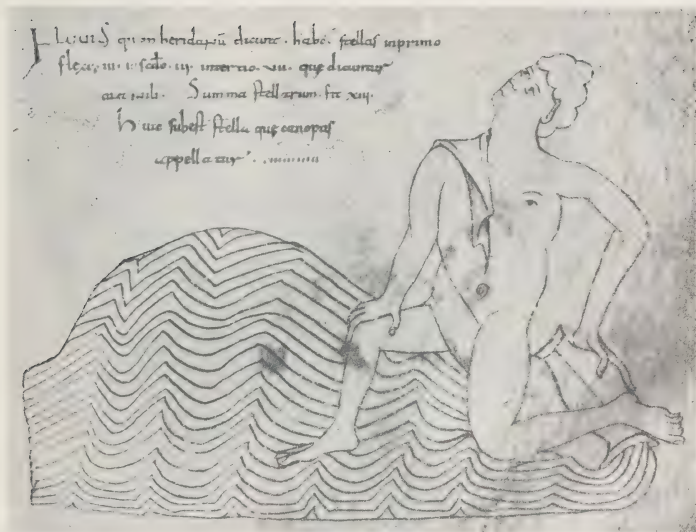 FLUVIUS quē heridanū dicunt. habē stellas in primo
flexu. iii. i scdo. iii. in tertio. vii. quę dicuntur
Summa stellarum. fit xiii.
huic subest stella quę canopus
appellatur